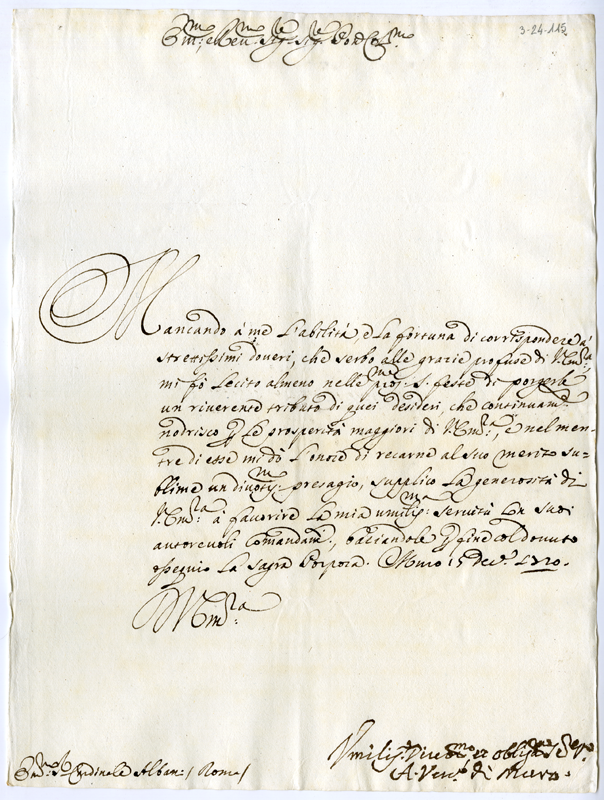 3-24-115
Em:mo e Rev:mo Sig:re Sig:re Pron Col:mo
Mancando á me l'abilitá, e la fortuna di corrispondere a'
strettissimi doveri, che serbo alle grazie profuse di V. Em:za,
mi fò lecito almeno nelle pros:me S. feste di porgerle
un riverente tributo di quei desideri, che continuam:te
nodrisco p le prosperitá maggiori di V. Em:za, e nel men=
tre di esse mi dò l'onore di recarne al suo merito su=
blime un divotis:mo presagio, supplico la generositá di
V. Em:za á favorire la mia umilis:ma servitú co' suoi
autorevoli comandam:ti, baciandole p fine col dovuto
ossequio la Sagra Porpora. Muro 15 Dec:re 1720.
Di V. Em:za
Em:o S:r Cardinale Albani / Roma /
Umilis:o Divot:mo et oblig:mo Ser:re
A. Vesc:o di Muro.